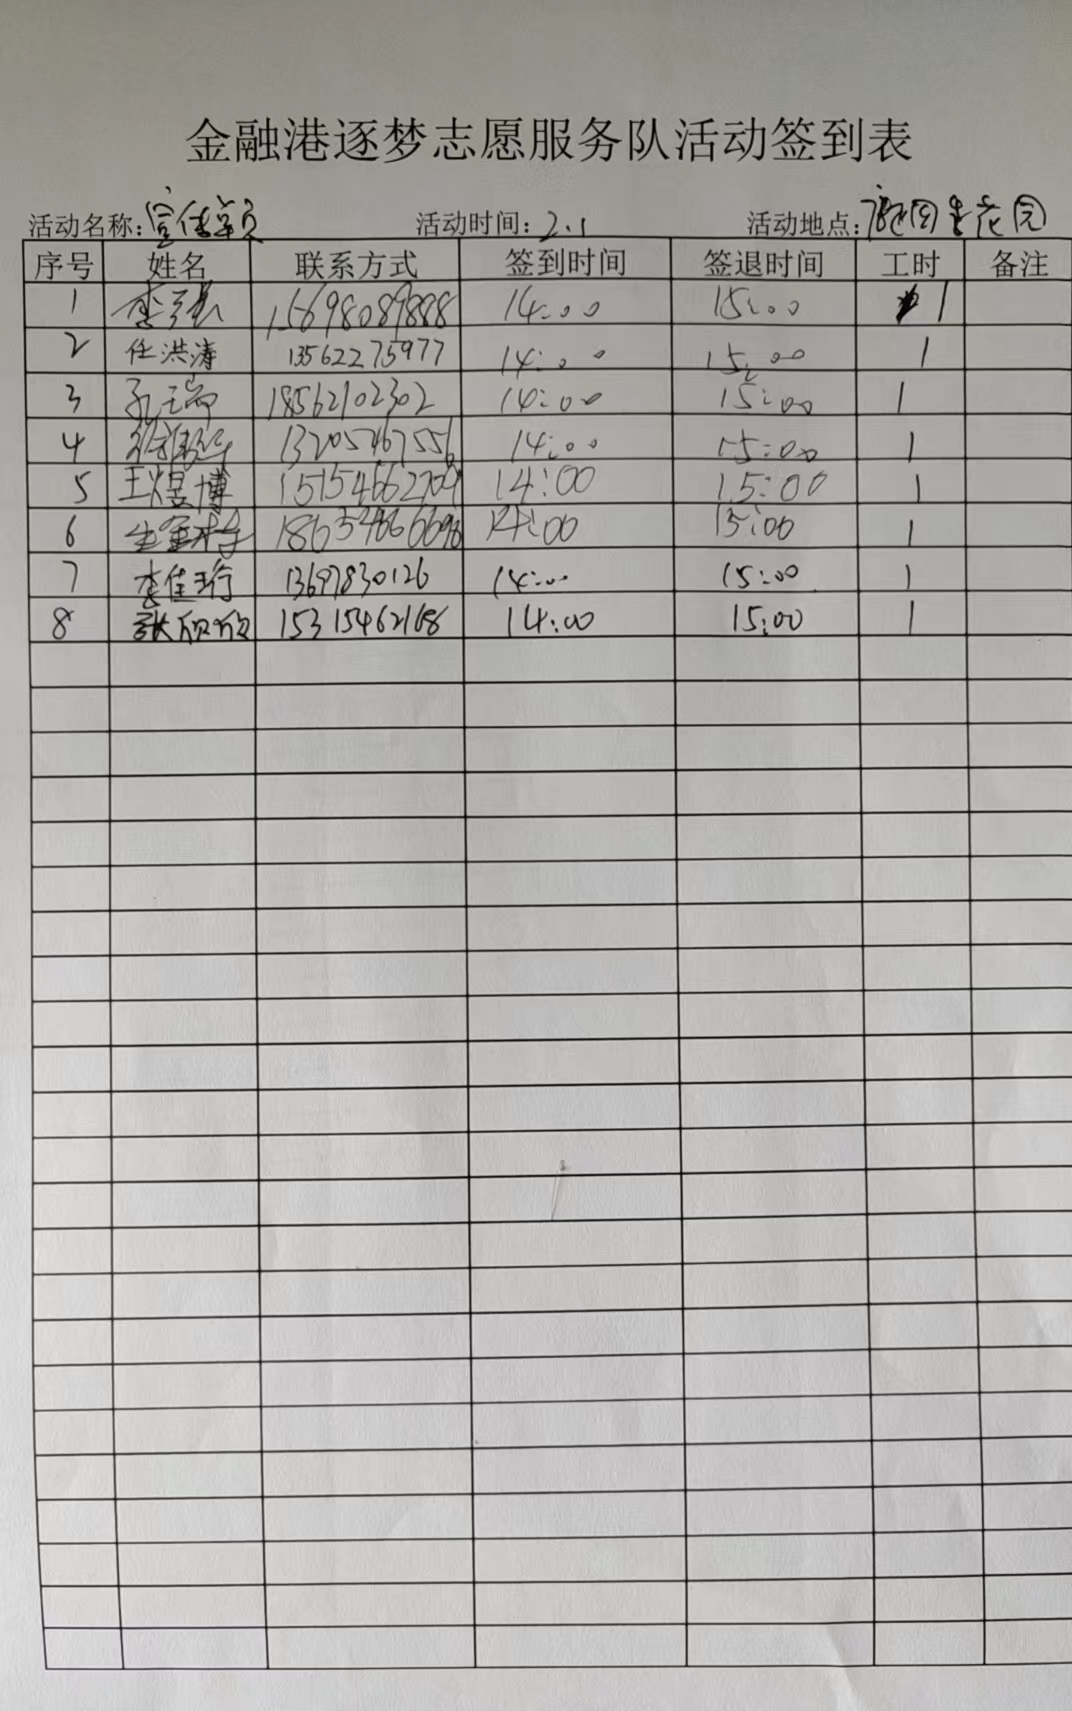 金融港逐梦志愿服务队活动签到表
活动名称: 宣传单页 活动时间: 2.1 活动地点: 花园
序号 姓名 联系方式 签到时间 签退时间 工时 备注
1 李 15698089888 14:00 15:00 1
2 任洪涛 13562275977 14:00 15:00 1
3 孔瑞 18562102302 14:00 15:00 1
4 13205467556 14:00 15:00 1
5 王煜博 15154662709 14:00 15:00 1
6 14:00 15:00 1
7 李佳珩 13697830126 14:00 15:00 1
8 张欣欣 15315462168 14:00 15:00 1